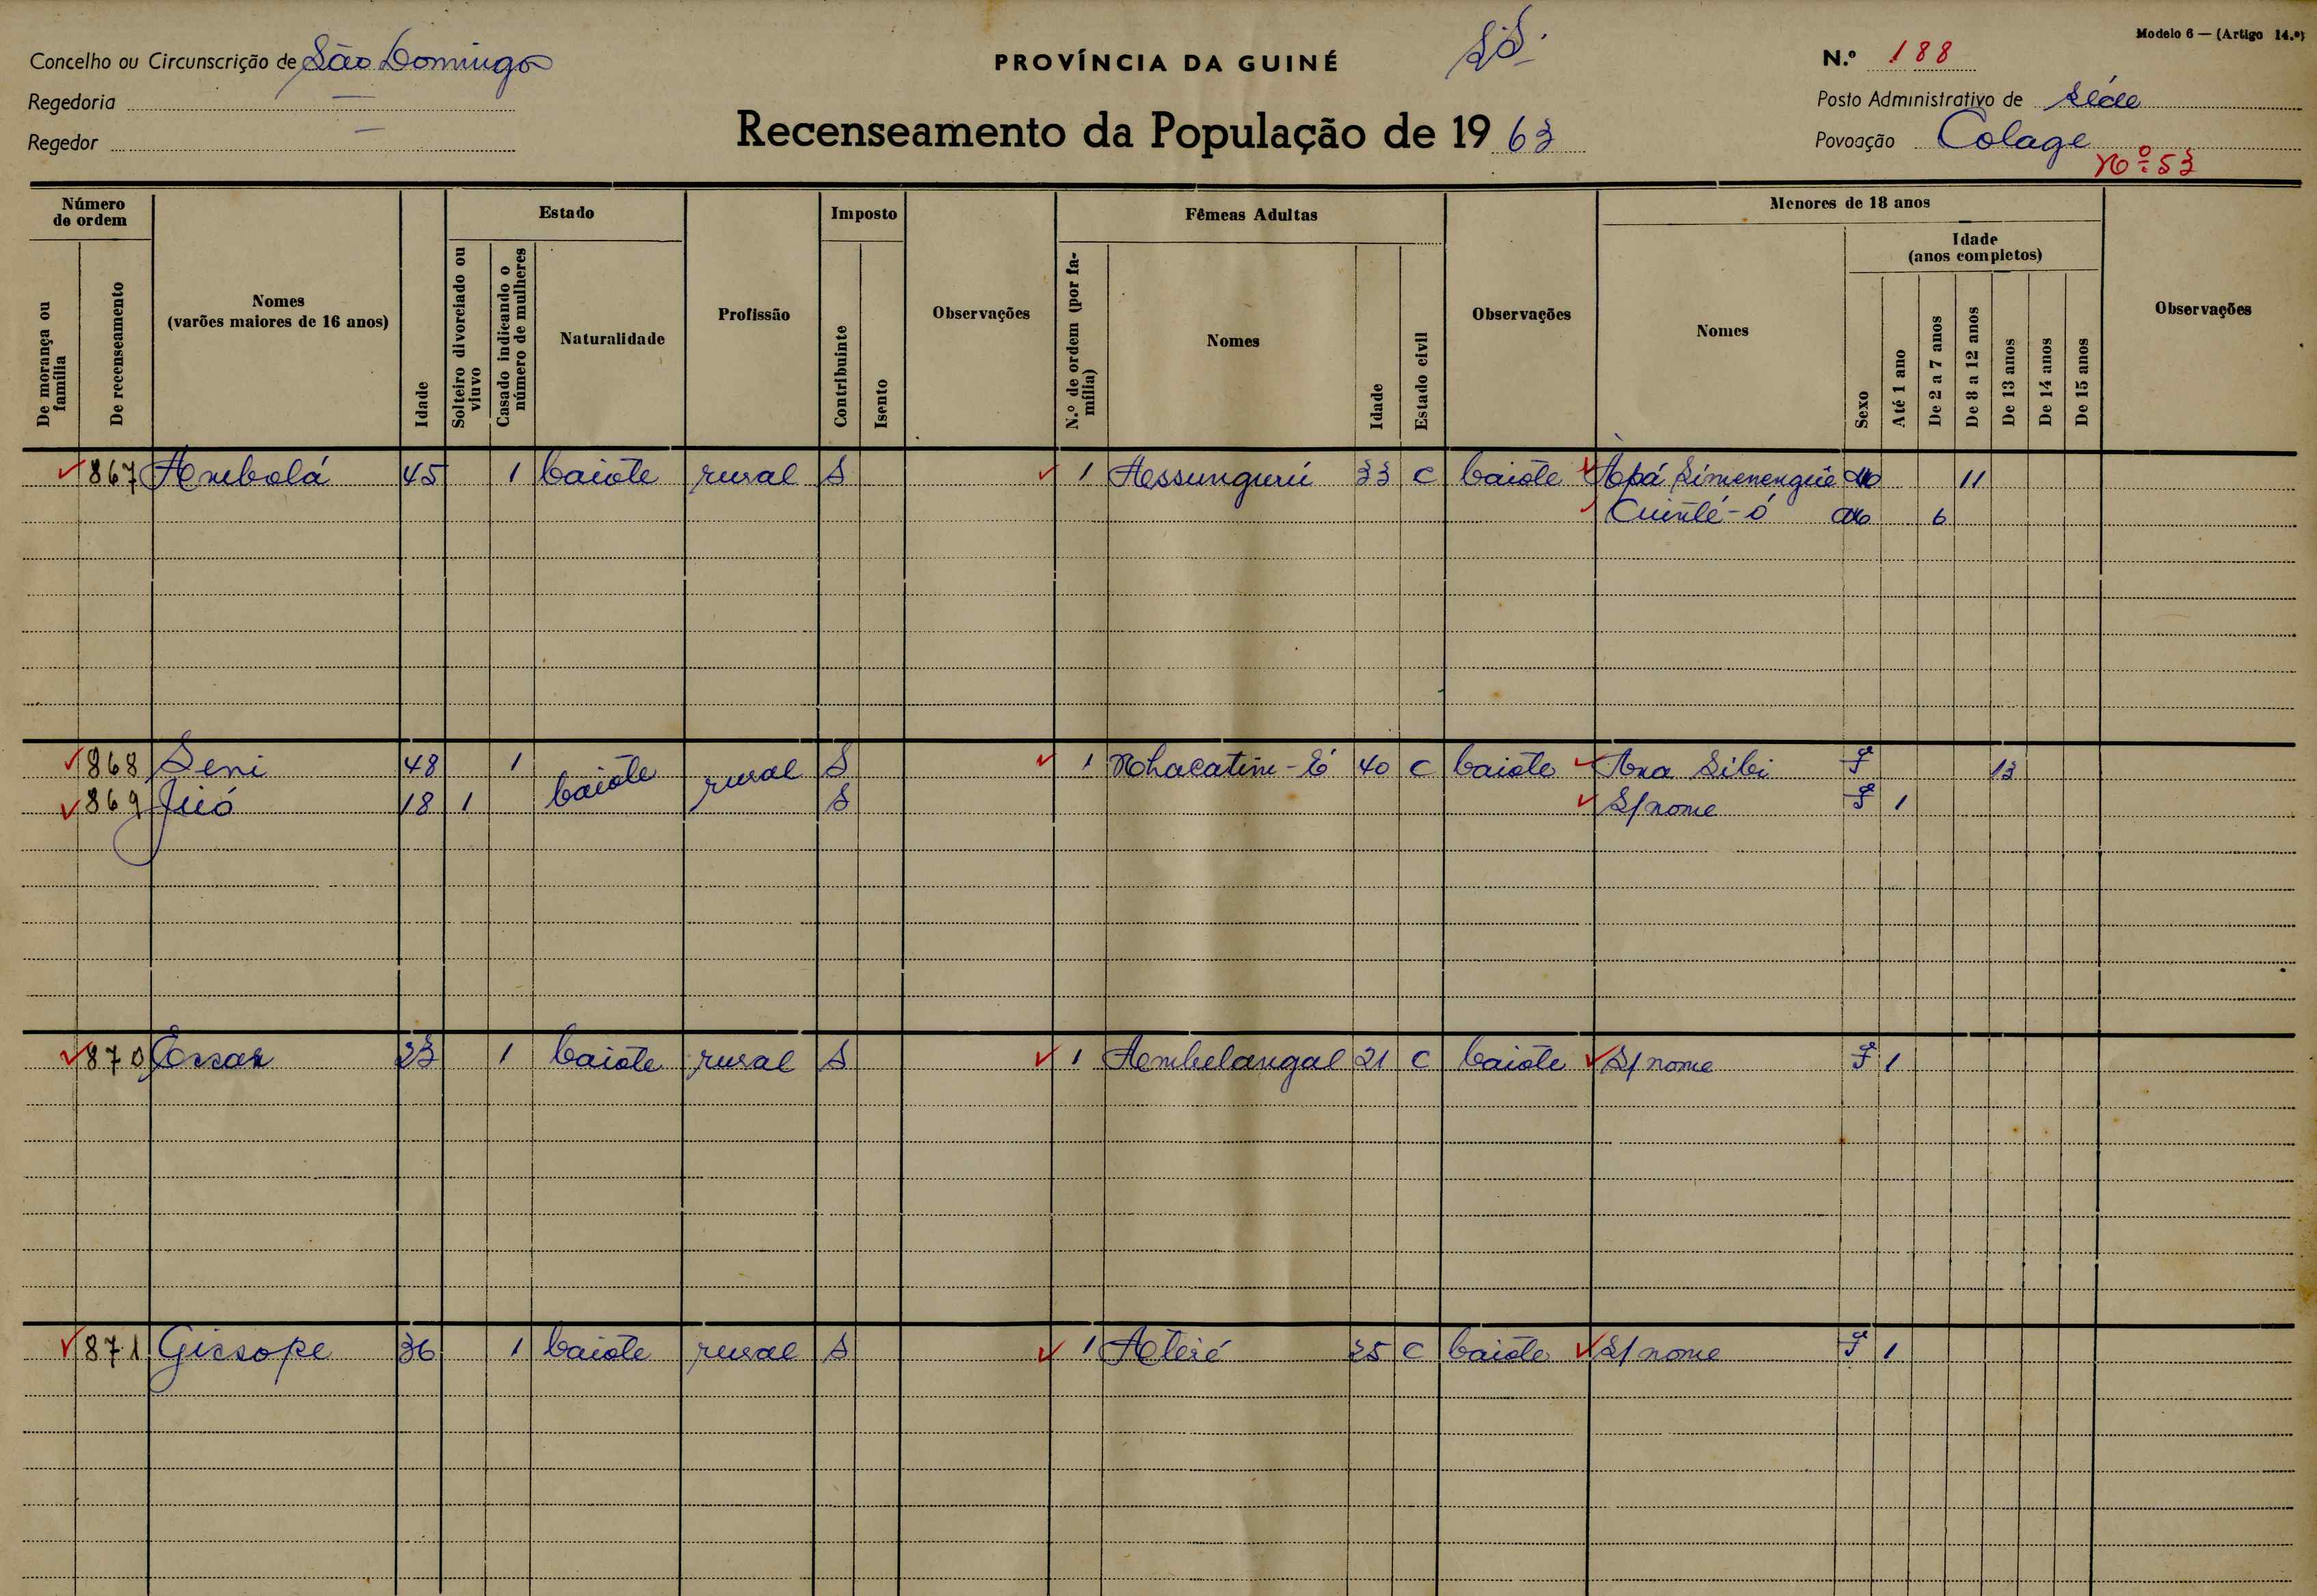 Modelo 6 — (Artigo 14.º)
Concelho ou Circunscrição de São Domingos
PROVÍNCIA DA GUINÉ
N.º 188
Regedoria —
Posto Administrativo de Séde
Regedor —
Recenseamento da População de 1963
Povoação Colage
Nº 53
Número de ordem
De morança ou família
De recenseamento
Nomes
(varões maiores de 16 anos)
Idade
Estado
Solteiro divorciado ou viuvo
Casado indicando o número de mulheres
Naturalidade
Profissão
Imposto
Contribuinte
Isento
Observações
Fêmeas Adultas
N.º de ordem (por família)
Nomes
Idade
Estado civil
Observações
Menores de 18 anos
Nomes
Sexo
Idade
(anos completos)
Até 1 ano
De 2 a 7 anos
De 8 a 12 anos
De 13 anos
De 14 anos
De 15 anos
Observações
867 Ambolá 45 1 baiote rural S 1 Assungurú 33 C baiote Apá Simenengué M 11
Cuinté-ó M 6
868 Seni 48 1 baiote rural S 1 Nhacatim-É 40 C baiote Ana Sibi F 13
869 Juó 18 1 S S/nome F 1
870 23 1 baiote rural S 1 Ambelangal 21 C baiote S/nome F 1
871 Gissope 36 1 baiote rural S 1 Aleié 25 C baiote S/nome F 1